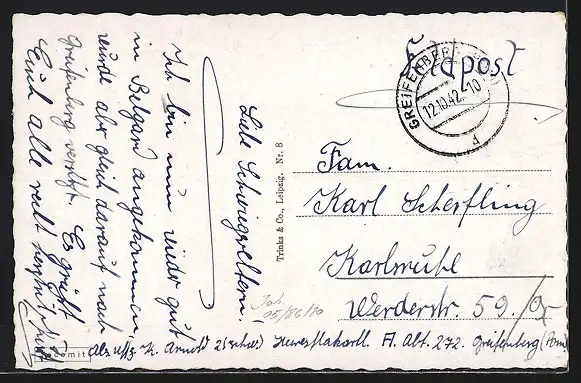 Feldpost
GREIFENBERG
12.10.42. 10
d
Liebe Schwiegereltern!
Ich bin nun wieder gut
in Belgard angekommen,
wurde aber gleich darauf nach
Greifenberg versetzt. Es grüßt
Euch alle recht herzlich Euer
Trinks & Co., Leipzig. Nr. 8
Fam.
Karl Scherfling
Karlsruhe
Werderstr. 59.
Abs. Uffz. K. Arnold 2 (schw.) A. Abt. 272. Greifenberg (Pom)